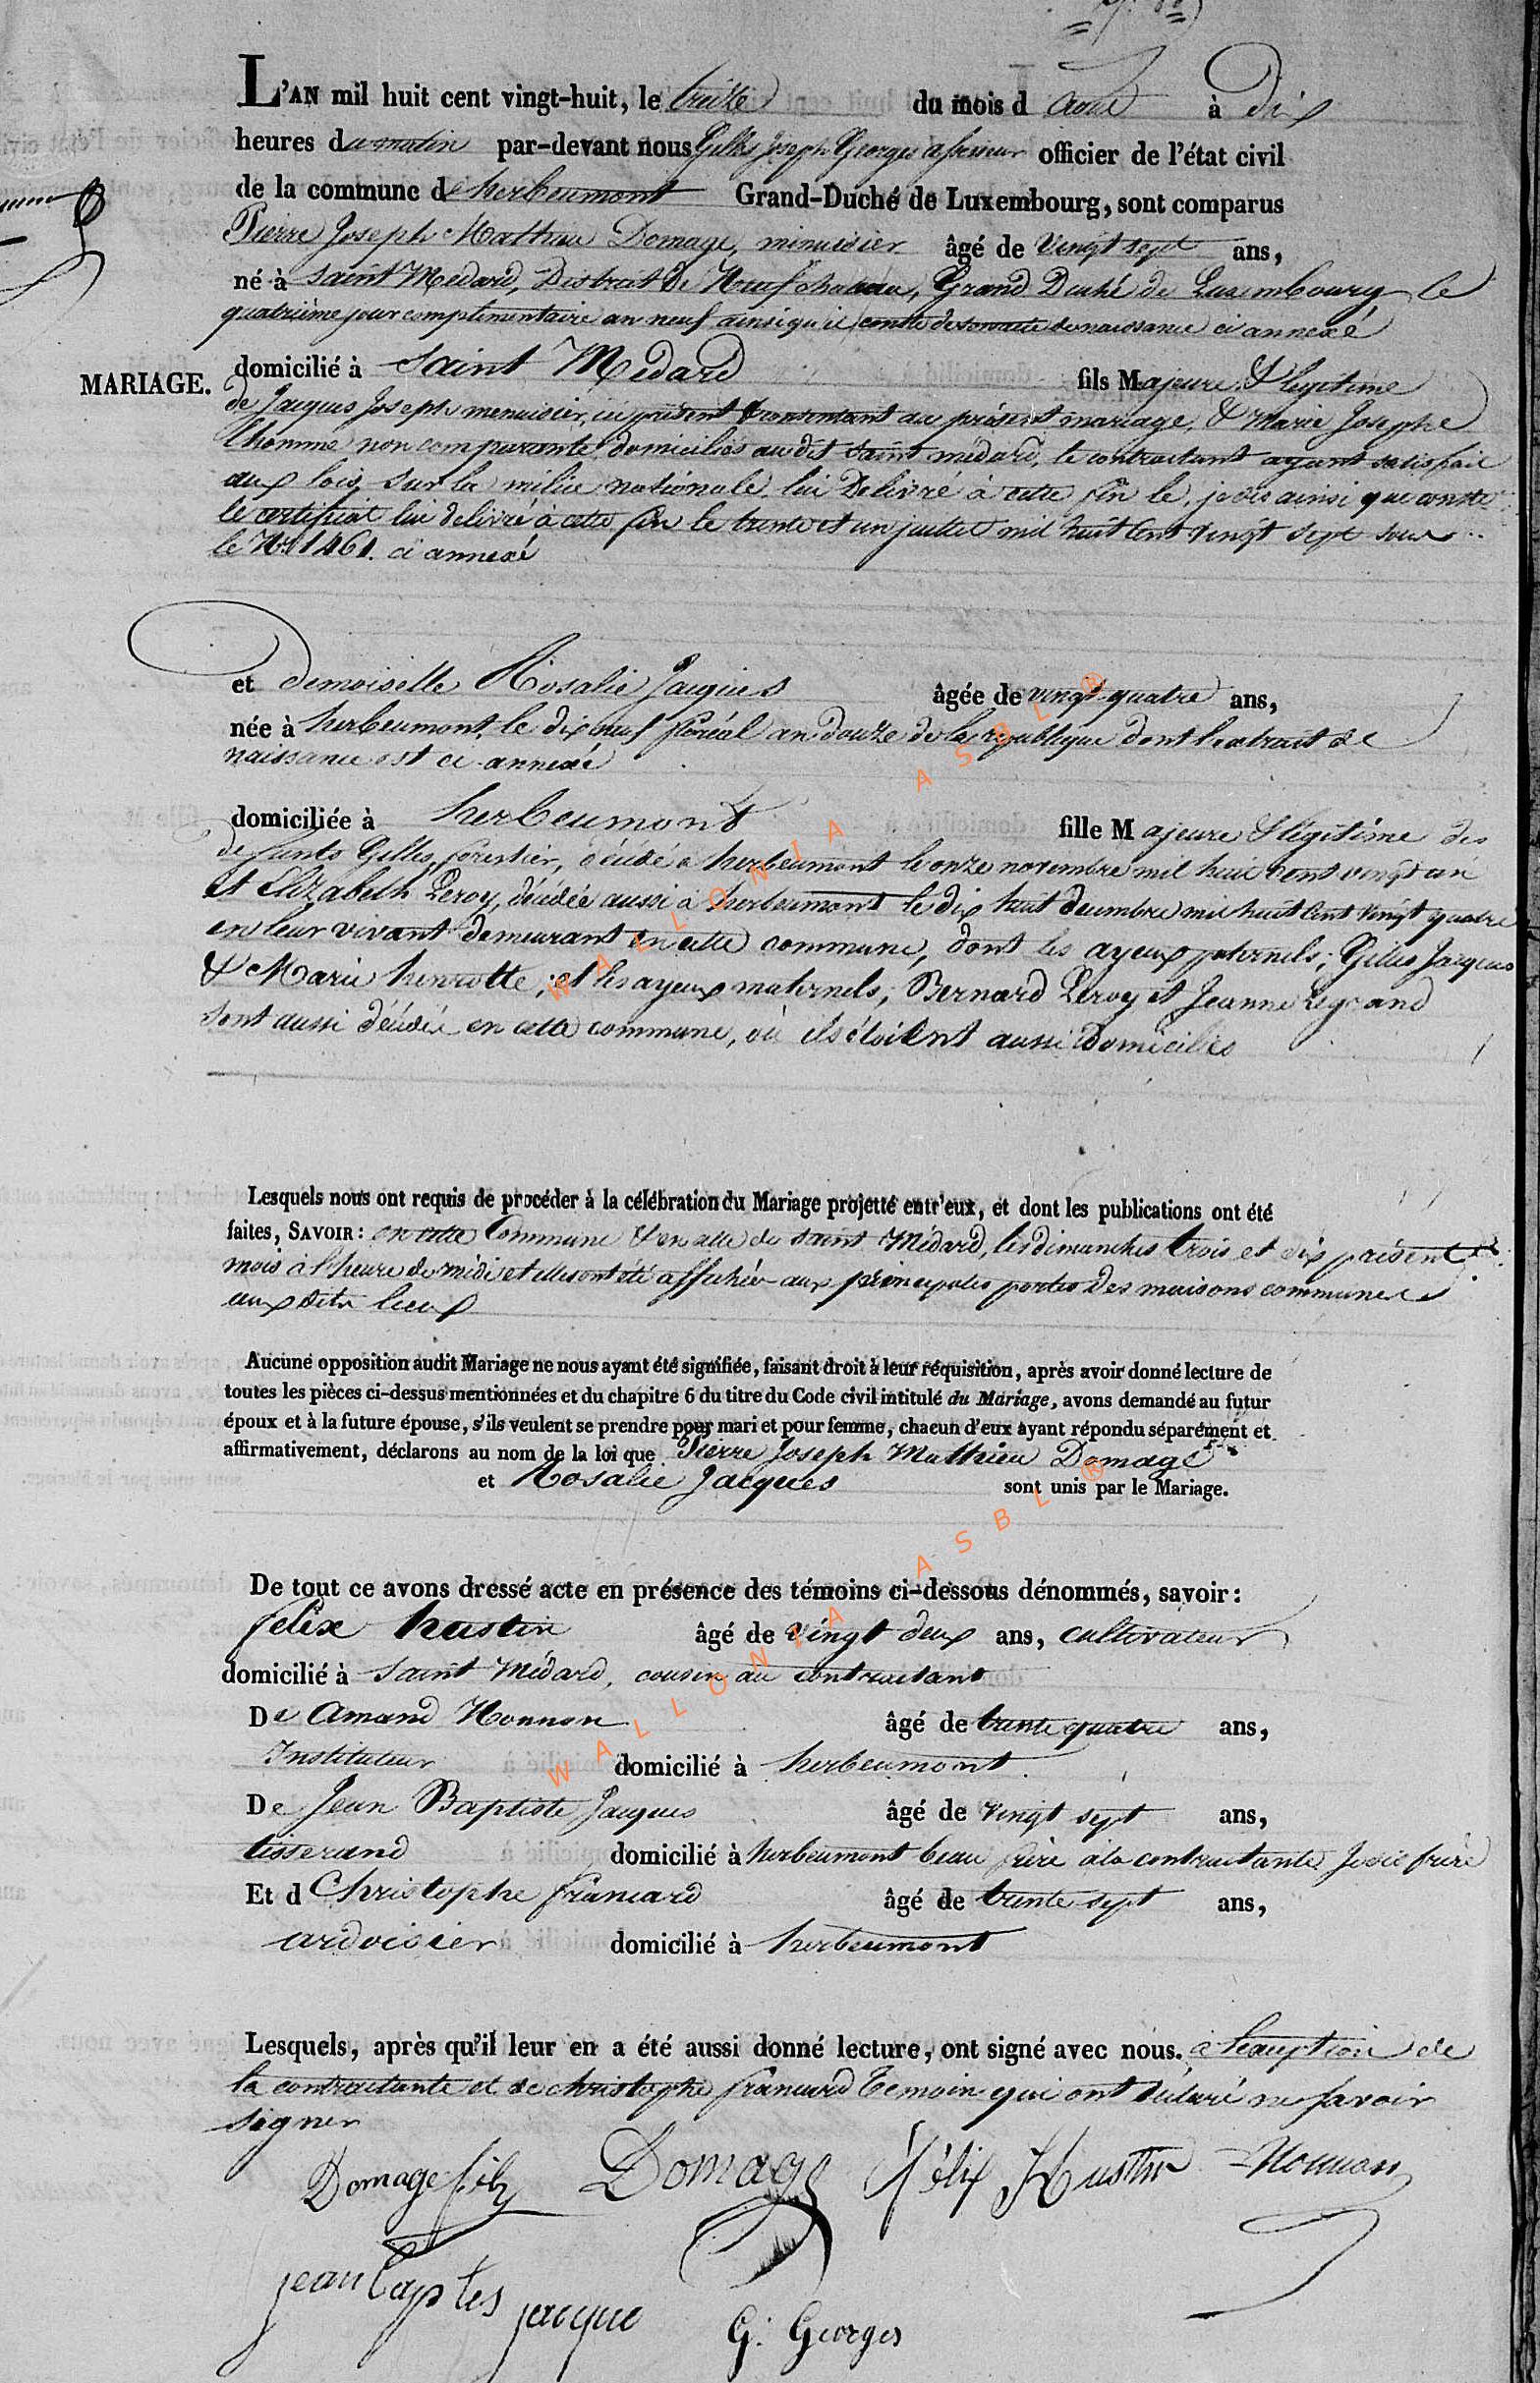 L'AN mil huit cent vingt-huit, le treize du mois d aout à Dix
heures du matin par-devant nous Gilles Joseph Georges assesseur officier de l'état civil
de la commune de herbeumont Grand-Duché de Luxembourg, sont comparus
Pierre Joseph Mathieu Domage, minuisier âgé de vingt sept ans,
né à Saint Medard, District de Neufchateau, Grand Duché de Luxembourg le
quatrième jour complimentaire an neuf ainsi qu'il conste de son acte de naissance ci annexé
MARIAGE.
domicilié à Saint Medard fils Majeure & legitime
de Jacques Joseph menuisier, ici présent & consentant au présent mariage, & Marie Josephe
Lhomme non comparante domiciliés au dit Saint médard, le contractant ayant satisfait
aux lois sur la milice nationale lui Delivré à cette fin le, je dis ainsi que conste
le certificat lui delivré à cette fin le trente et un juillet mil huit Cent vingt sept sous
le No. 1461. ci annexé
et Demoiselle Rosalie Jacques âgée de vingt quatre ans,
née à herbeumont, le dix neuf floréal an douze de la république dont l'extrait de
naissance est ci annexé
domiciliée à herbeumont fille Majeure & légitime des
defunts Gilles, forestier, décédé à herbeumont le onze novembre mil huit cent vingt un
et Elizabeth Leroy, décédée aussi à herbeumont le dix huit decembre mil huit Cent vingt quatre
en leur vivant demeurant en cette commune, dont les ayeux paternels; Gilles Jacques
& Marie henrotte; et les ayeux maternels; Bernard Leroy et Jeanne Legrand
sont aussi décédés en cette commune, où ils étoient aussi Domiciliés
Lesquels nous ont requis de procéder à la célébration du Mariage projetté entr'eux, et dont les publications ont été
faites, SAVOIR: en cette Commune & en celle de Saint Médard, les dimanches trois et dix présent
mois à l'heure de midi et elles ont été affichées aux principales portes des maisons communes
aux dits lieux
Aucune opposition audit Mariage ne nous ayant été signifiée, faisant droit à leur réquisition, après avoir donné lecture de
toutes les pièces ci-dessus mentionnées et du chapitre 6 du titre du Code civil intitulé du Mariage, avons demandé au futur
époux et à la future épouse, s'ils veulent se prendre pour mari et pour femme, chacun d'eux ayant répondu séparément et
affirmativement, déclarons au nom de la loi que Pierre Joseph Mathieu Domage
et Rosalie Jacques sont unis par le Mariage.
De tout ce avons dressé acte en présence des témoins ci-dessous dénommés, savoir:
felix hustin âgé de vingt deux ans, cultivateur
domicilié à Saint Médard, cousin au contractant
De Amand Nonnon âgé de trente quatre ans,
Instituteur domicilié à herbeumont
De Jean Baptiste Jacques âgé de vingt sept ans,
tisserand domicilié à herbeumont beau frère à la contractante, Je dis frère
Et d Christophe francard âgé de trente sept ans,
ardoisier domicilié à herbeumont
Lesquels, après qu'il leur en a été aussi donné lecture, ont signé avec nous. à l'exception de
la contractante et de christophe francard Temoin qui ont déclaré ne savoir
signer
Domage fils Domage félix Hustin Nonnon
jean baptes jacque G. Georges
WALLONIA ASBL ®
WALLONIA ASBL ®